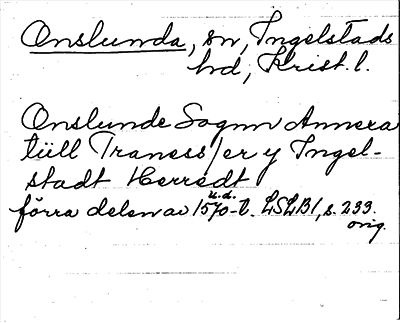 Onslunda, sn, Ingelstads
hd, Krist. l.
Onslunde Sognn Annera
tüll Traness/er y Ingel-
stadt Herredt
u.d.
förra delen av 1570-t. LSLB1, s. 233.
orig.